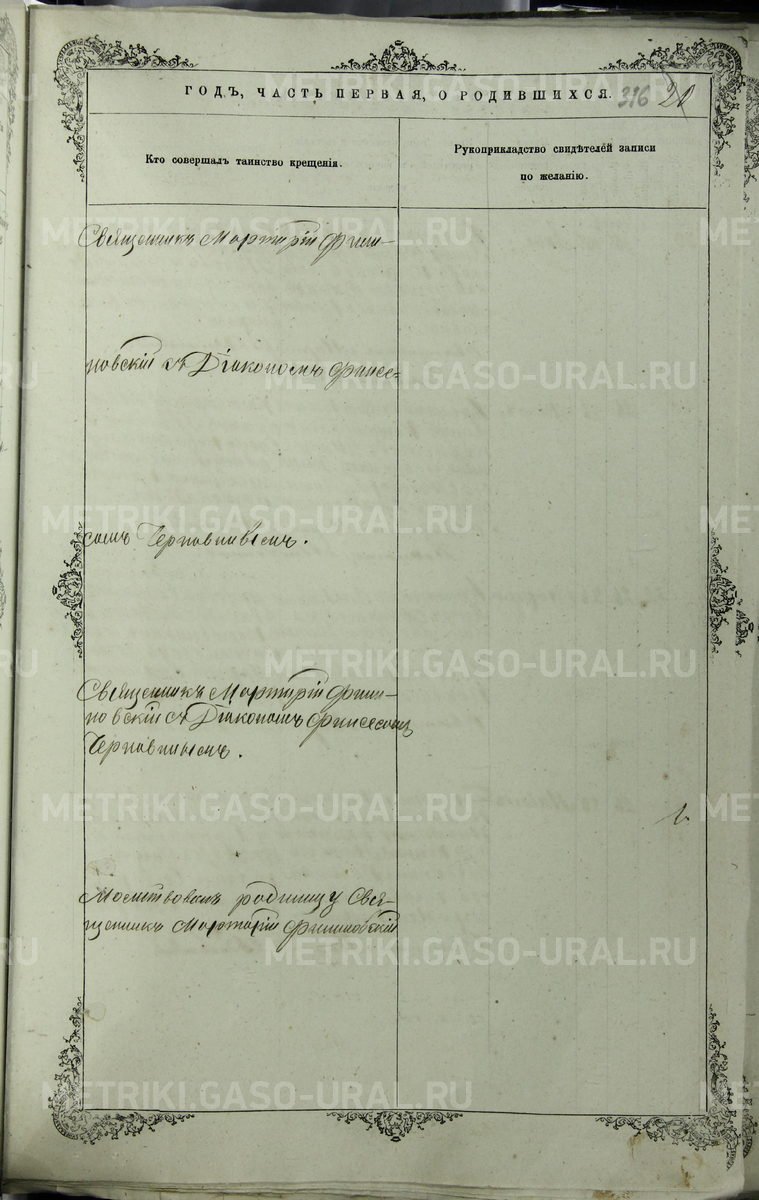 ГОДЪ, ЧАСТЬ ПЕРВАЯ, О РОДИВШИХСЯ.
316 20
Кто совершалъ таинство крещенія.
Рукоприкладство свидѣтелей записи
по желанію.
Священникъ Мартирій Фили-
повскій съ Діакономъ
Священникъ Мартирій Фили-
повскій съ Діакономъ
Молитвовалъ родилицу Свя-
щенникъ Мартирій Филиповскій
METRIKI.GASO-URAL.RU